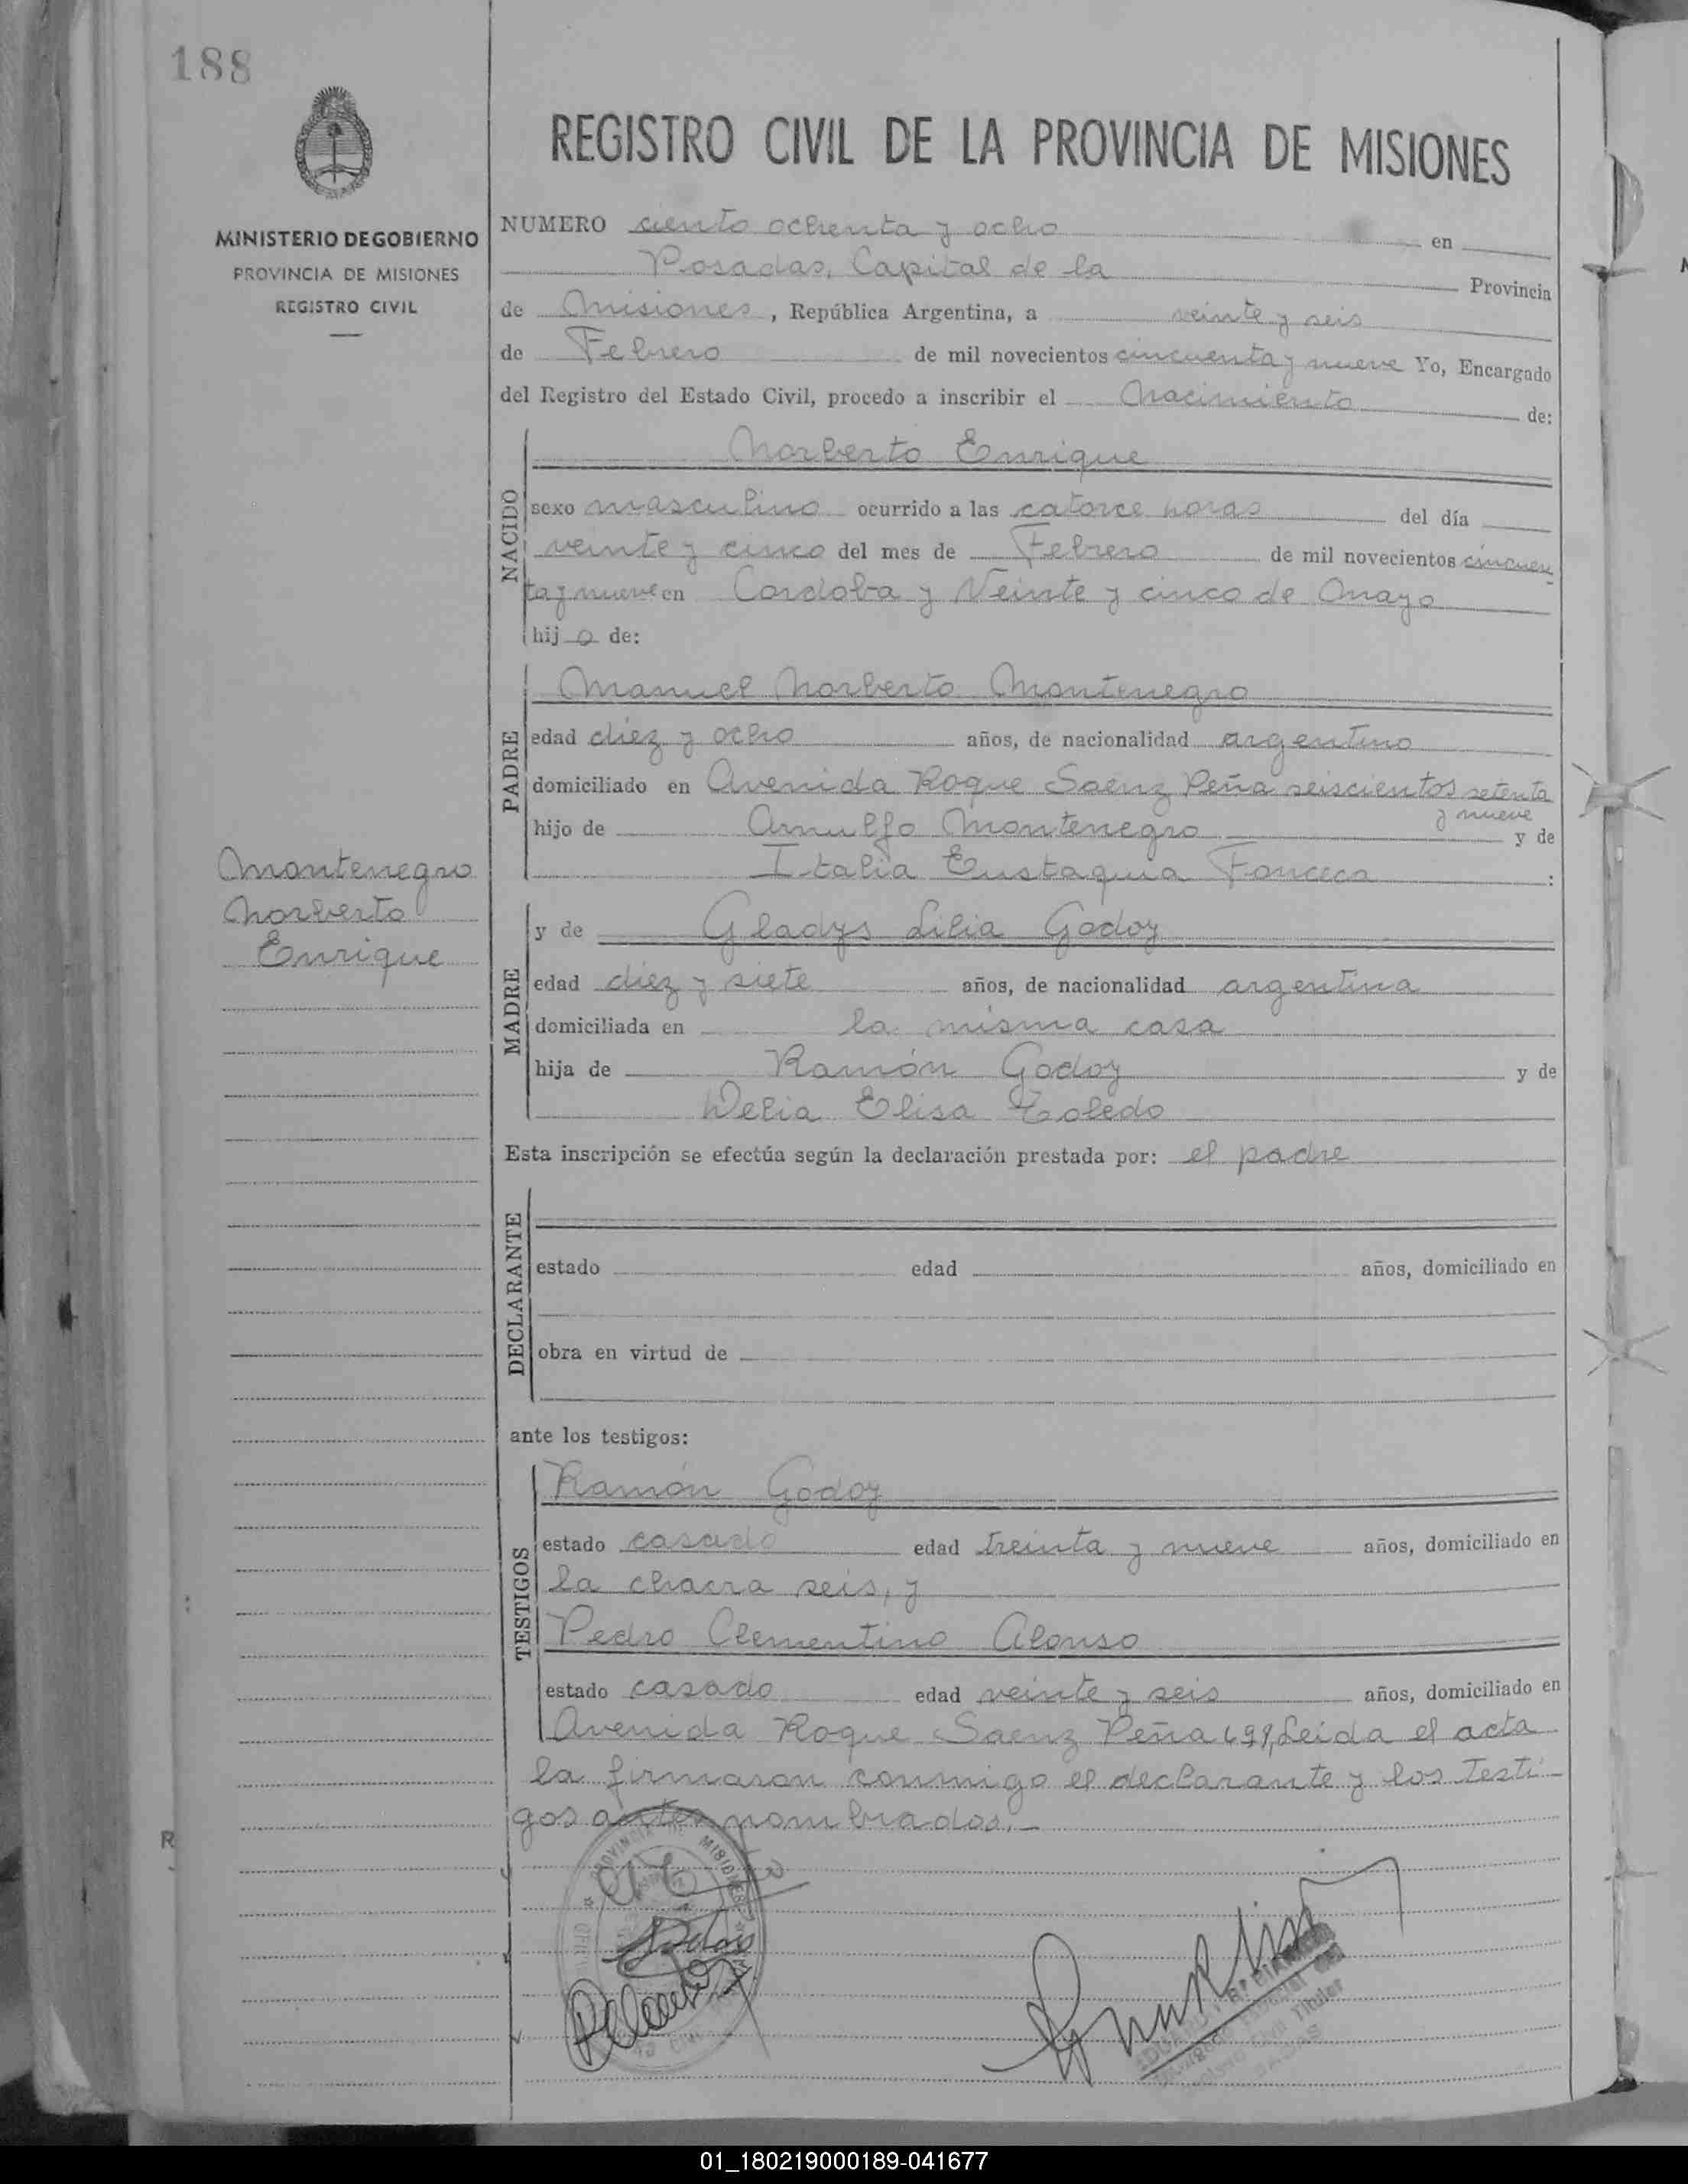 188
REGISTRO CIVIL DE LA PROVINCIA DE MISIONES
MINISTERIO DE GOBIERNO
PROVINCIA DE MISIONES
REGISTRO CIVIL
NUMERO ciento ochenta y ocho en
Posadas, Capital de la Provincia
de Misiones, República Argentina, a veinte y seis
de Febrero de mil novecientos cincuenta y nueve Yo, Encargado
del Registro del Estado Civil, procedo a inscribir el Nacimiento de:
NACIDO
Norberto Enrique
sexo masculino ocurrido a las catorce horas del día
veinte y cinco del mes de Febrero de mil novecientos cincuen
ta y nueve en Cordoba y Veinte y cinco de Mayo
hijo de:
PADRE
Manuel Norberto Montenegro
edad diez y ocho años, de nacionalidad argentino
domiciliado en Avenida Roque Saenz Peña seiscientos setenta
y nueve
hijo de Arnulfo Montenegro y de
Italia Eustaquia Fonceca :
Montenegro
Norberto
Enrique
MADRE
y de Gladys Lilia Godoy
edad diez y siete años, de nacionalidad argentina
domiciliada en la misma casa
hija de Ramón Godoy y de
Delia Elisa Toledo
Esta inscripción se efectúa según la declaración prestada por: el padre
DECLARANTE
estado edad años, domiciliado en
obra en virtud de
ante los testigos:
TESTIGOS
Ramón Godoy
estado casado edad treinta y nueve años, domiciliado en
la chacra seis, y
Pedro Clementino Alonso
estado casado edad veinte y seis años, domiciliado en
Avenida Roque Saenz Peña Leida el acta
la firmaron conmigo el declarante y los testi-
gos antes nombrados.-
PROVINCIA DE MISIONES
Titular
01_180219000189-041677